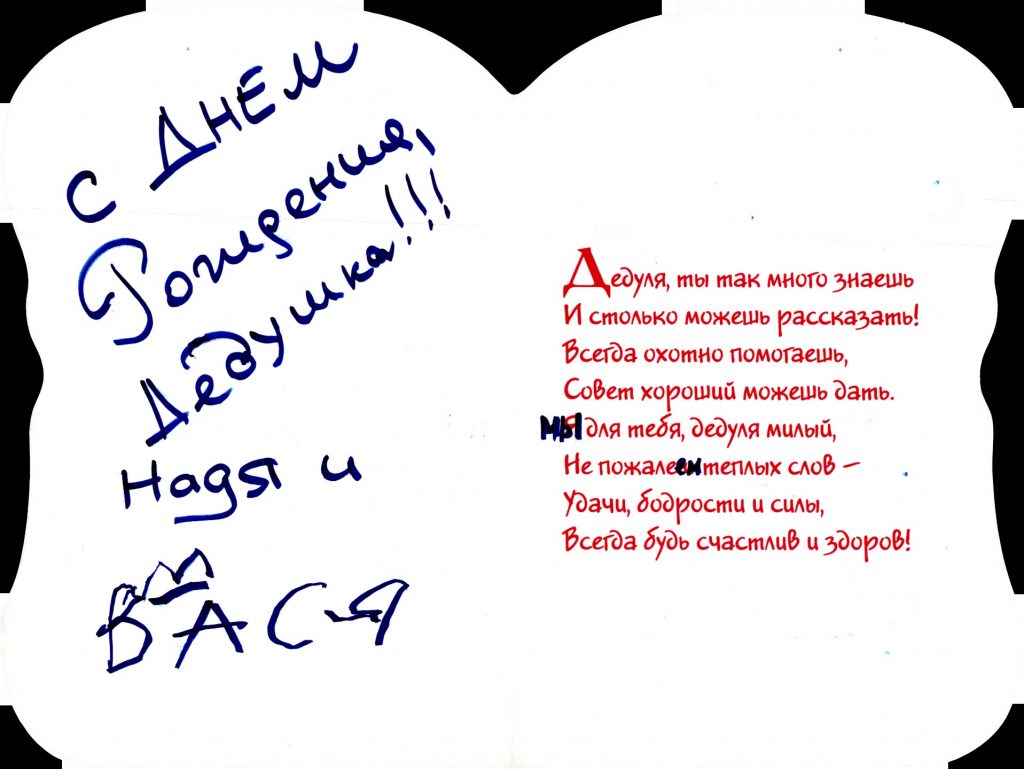 С ДНЕМ
Рождения,
Дедушка!!!
Надя и
ВАСЯ
Дедуля, ты так много знаешь
И столько можешь рассказать!
Всегда охотно помогаешь,
Совет хороший можешь дать.
мы для тебя, дедуля милый,
Не пожалеем теплых слов –
Удачи, бодрости и силы,
Всегда будь счастлив и здоров!